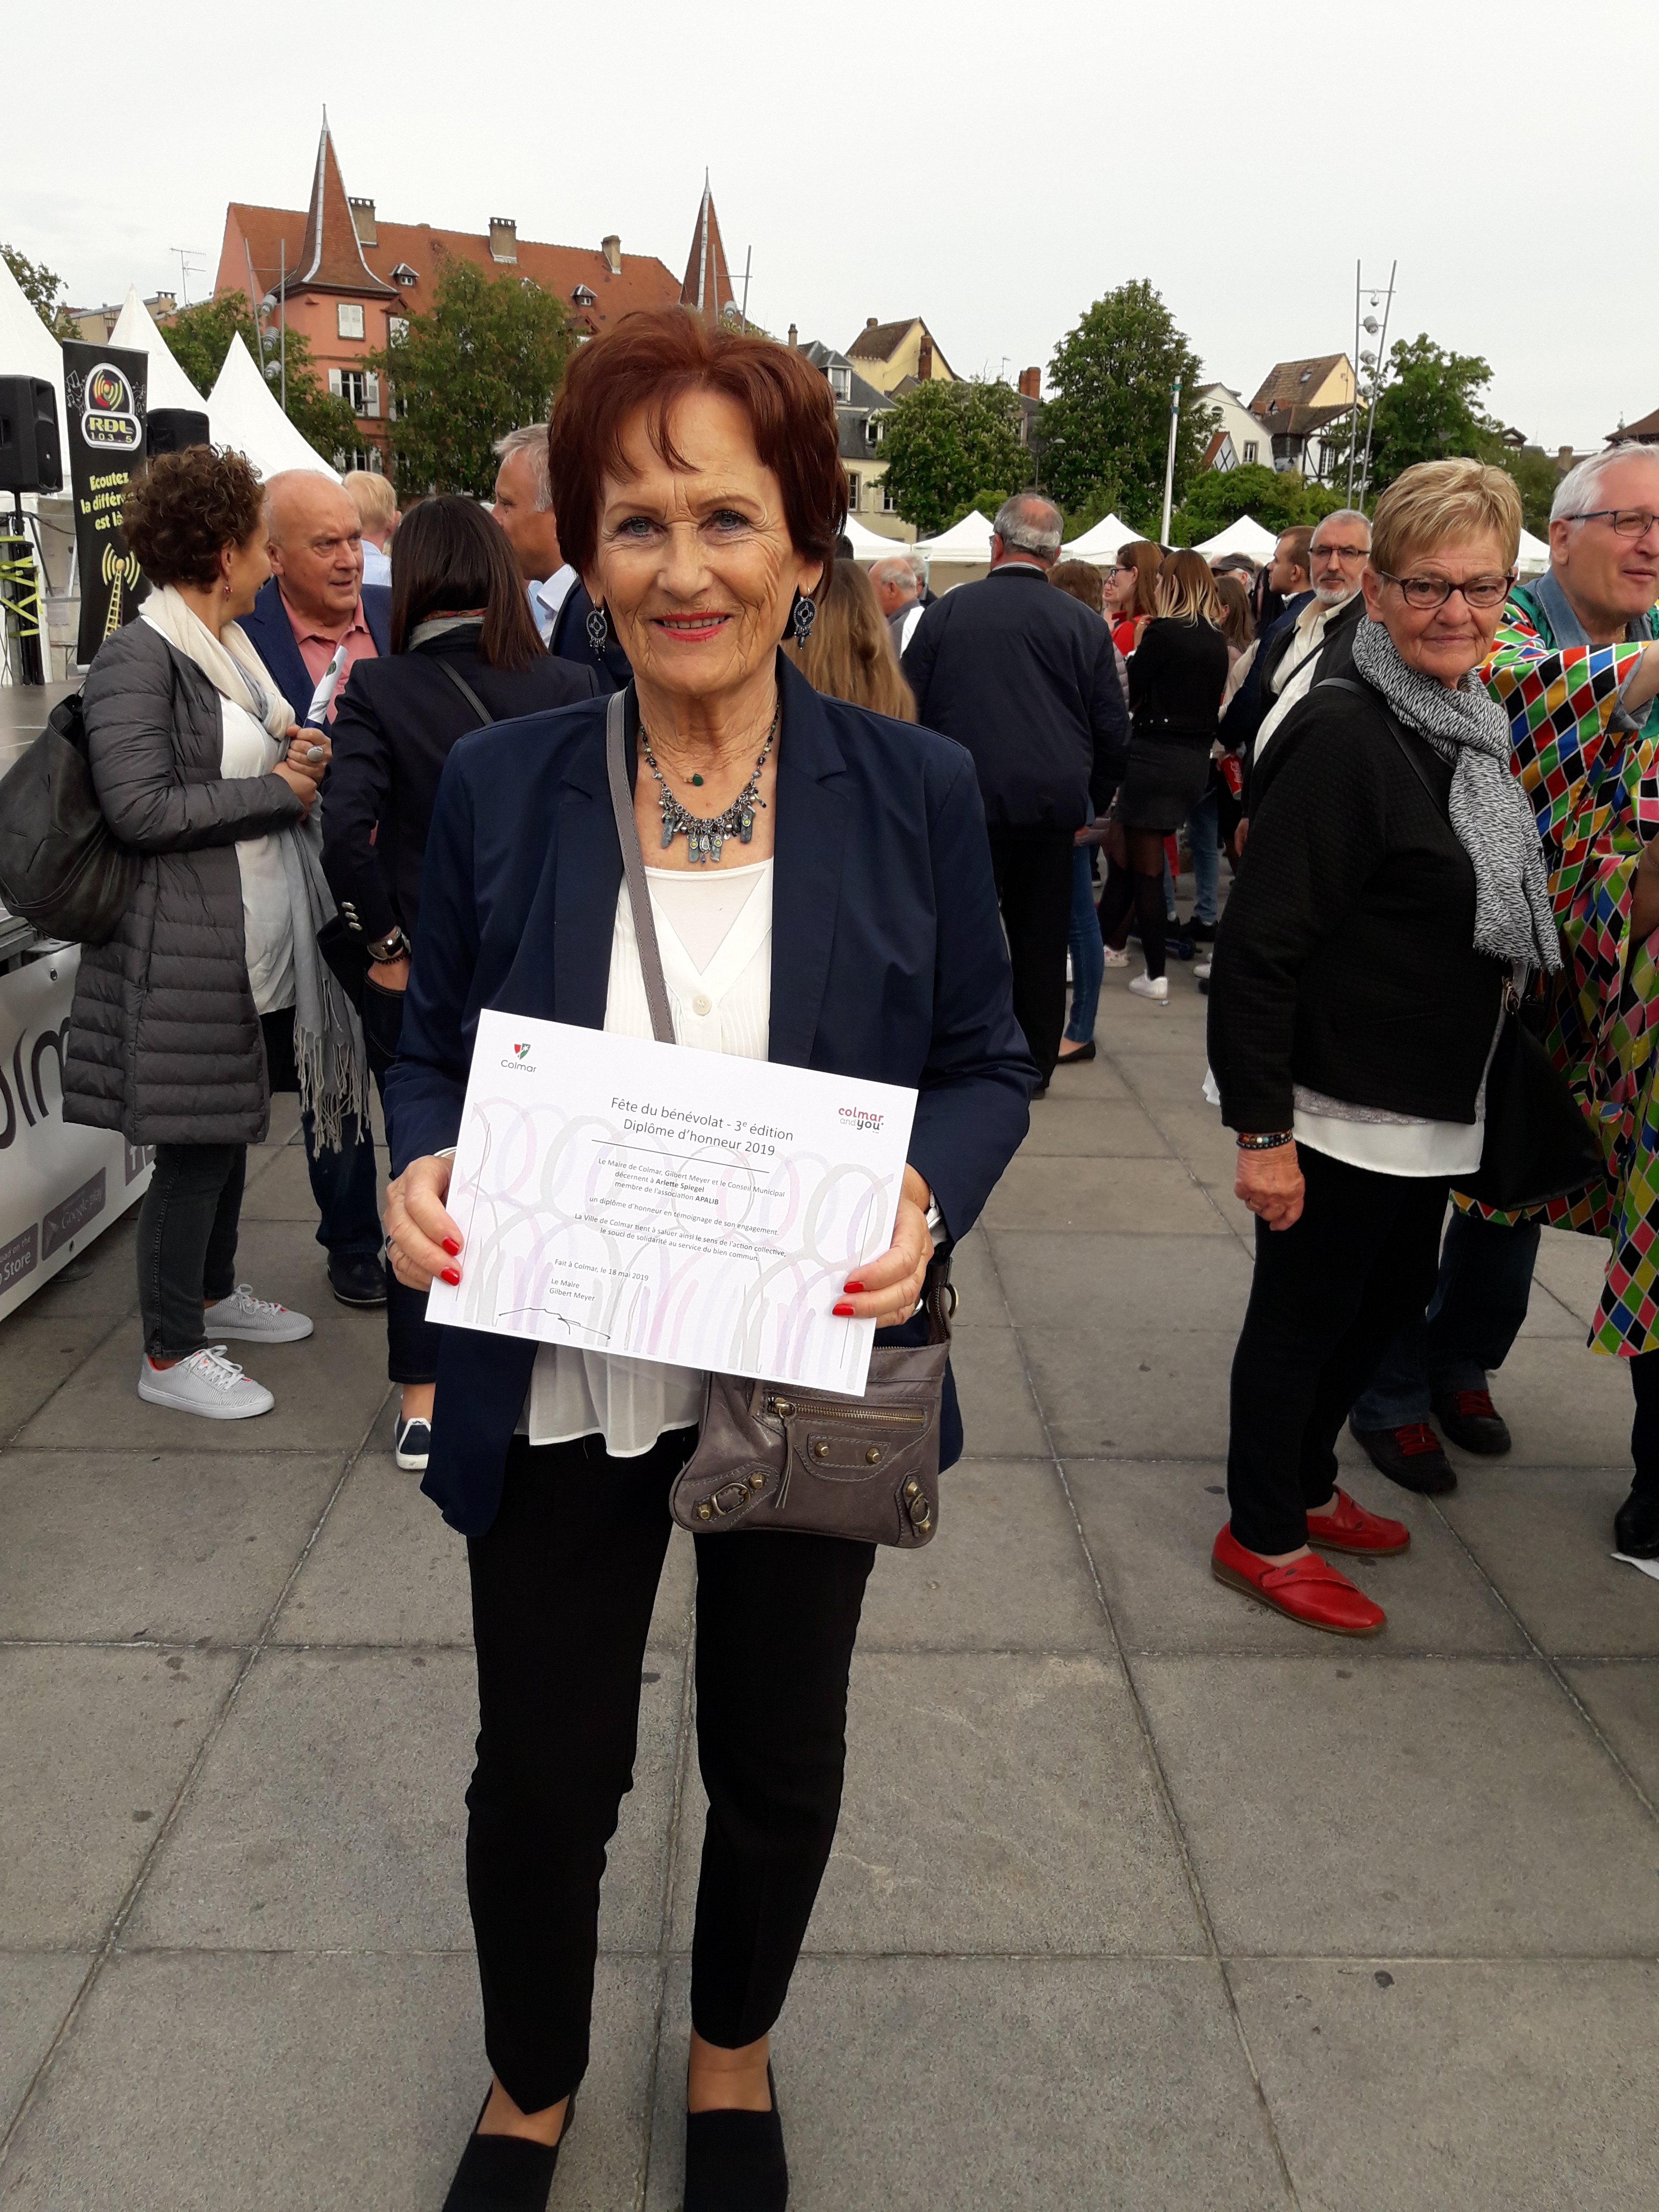 RDL
103.5
Ecoutez
la différ
est là
Colmar
colmar
and you
Fête du bénévolat - 3e édition
Diplôme d'honneur 2019
Le Maire de Colmar, Gilbert Meyer et le Conseil Municipal
décernent à Arlette Spiegel
membre de l'association APALIB
un diplôme d'honneur en témoignage de son engagement.
La Ville de Colmar tient à saluer ainsi le sens de l'action collective,
le souci de solidarité au service du bien commun.
Fait à Colmar, le 18 mai 2019
Le Maire
Gilbert Meyer
on the
Store
Google play